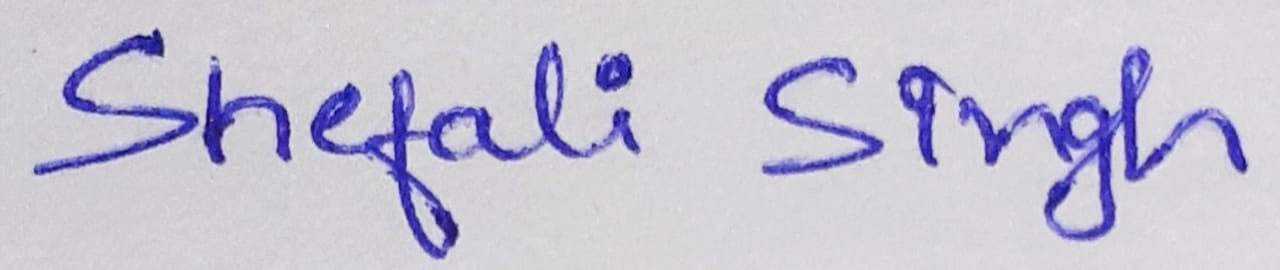 Shefali Singh